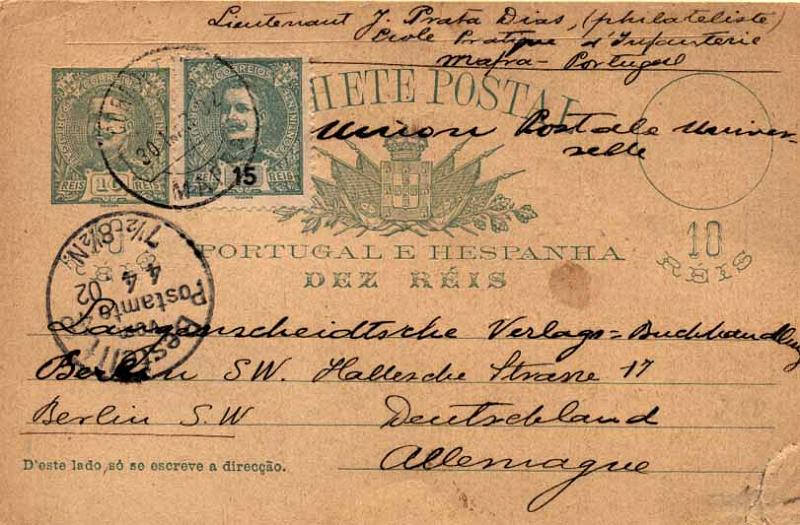 Lieutenant J. Prata Dias, (philateliste)
Ecole Pratique d'Infanterie
Mafra - Portugal
BILHETE POSTAL
Union Postale Univer-
selle
CORREIOS
REIS 10 REIS
CORREIOS
REIS 15 REIS
30 MAR 02
MAFRA
10
RÉIS
10
RÉIS
PORTUGAL E HESPANHA
DEZ RÉIS
Bestellt
vom
Postamte
4 4 02
7½-8½N.
Langenscheidtsche Verlags=Buchhandlung
Berlin SW. Hallesche Strasse 17
Berlin S.W Deutschland
Allemagne
D'este lado, só se escreve a direcção.